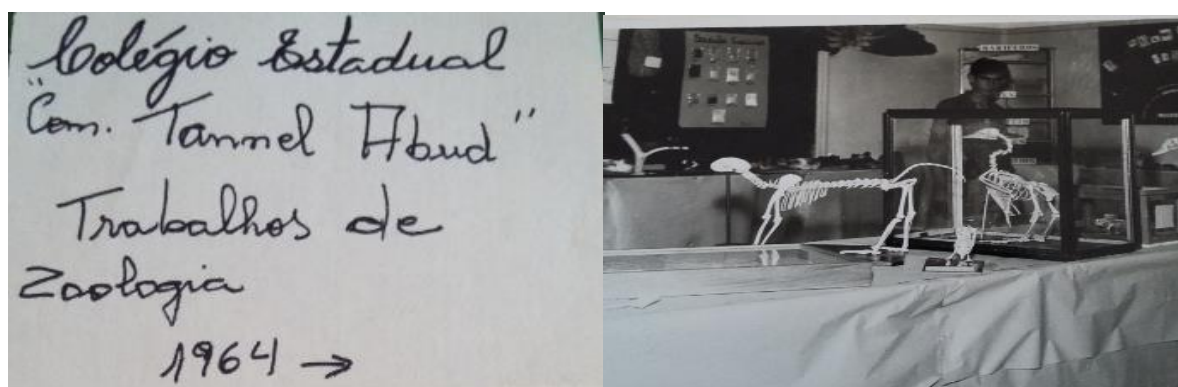 Colégio Estadual
"Com. Tannel Abud"
Trabalhos de
Zoologia
1964 →